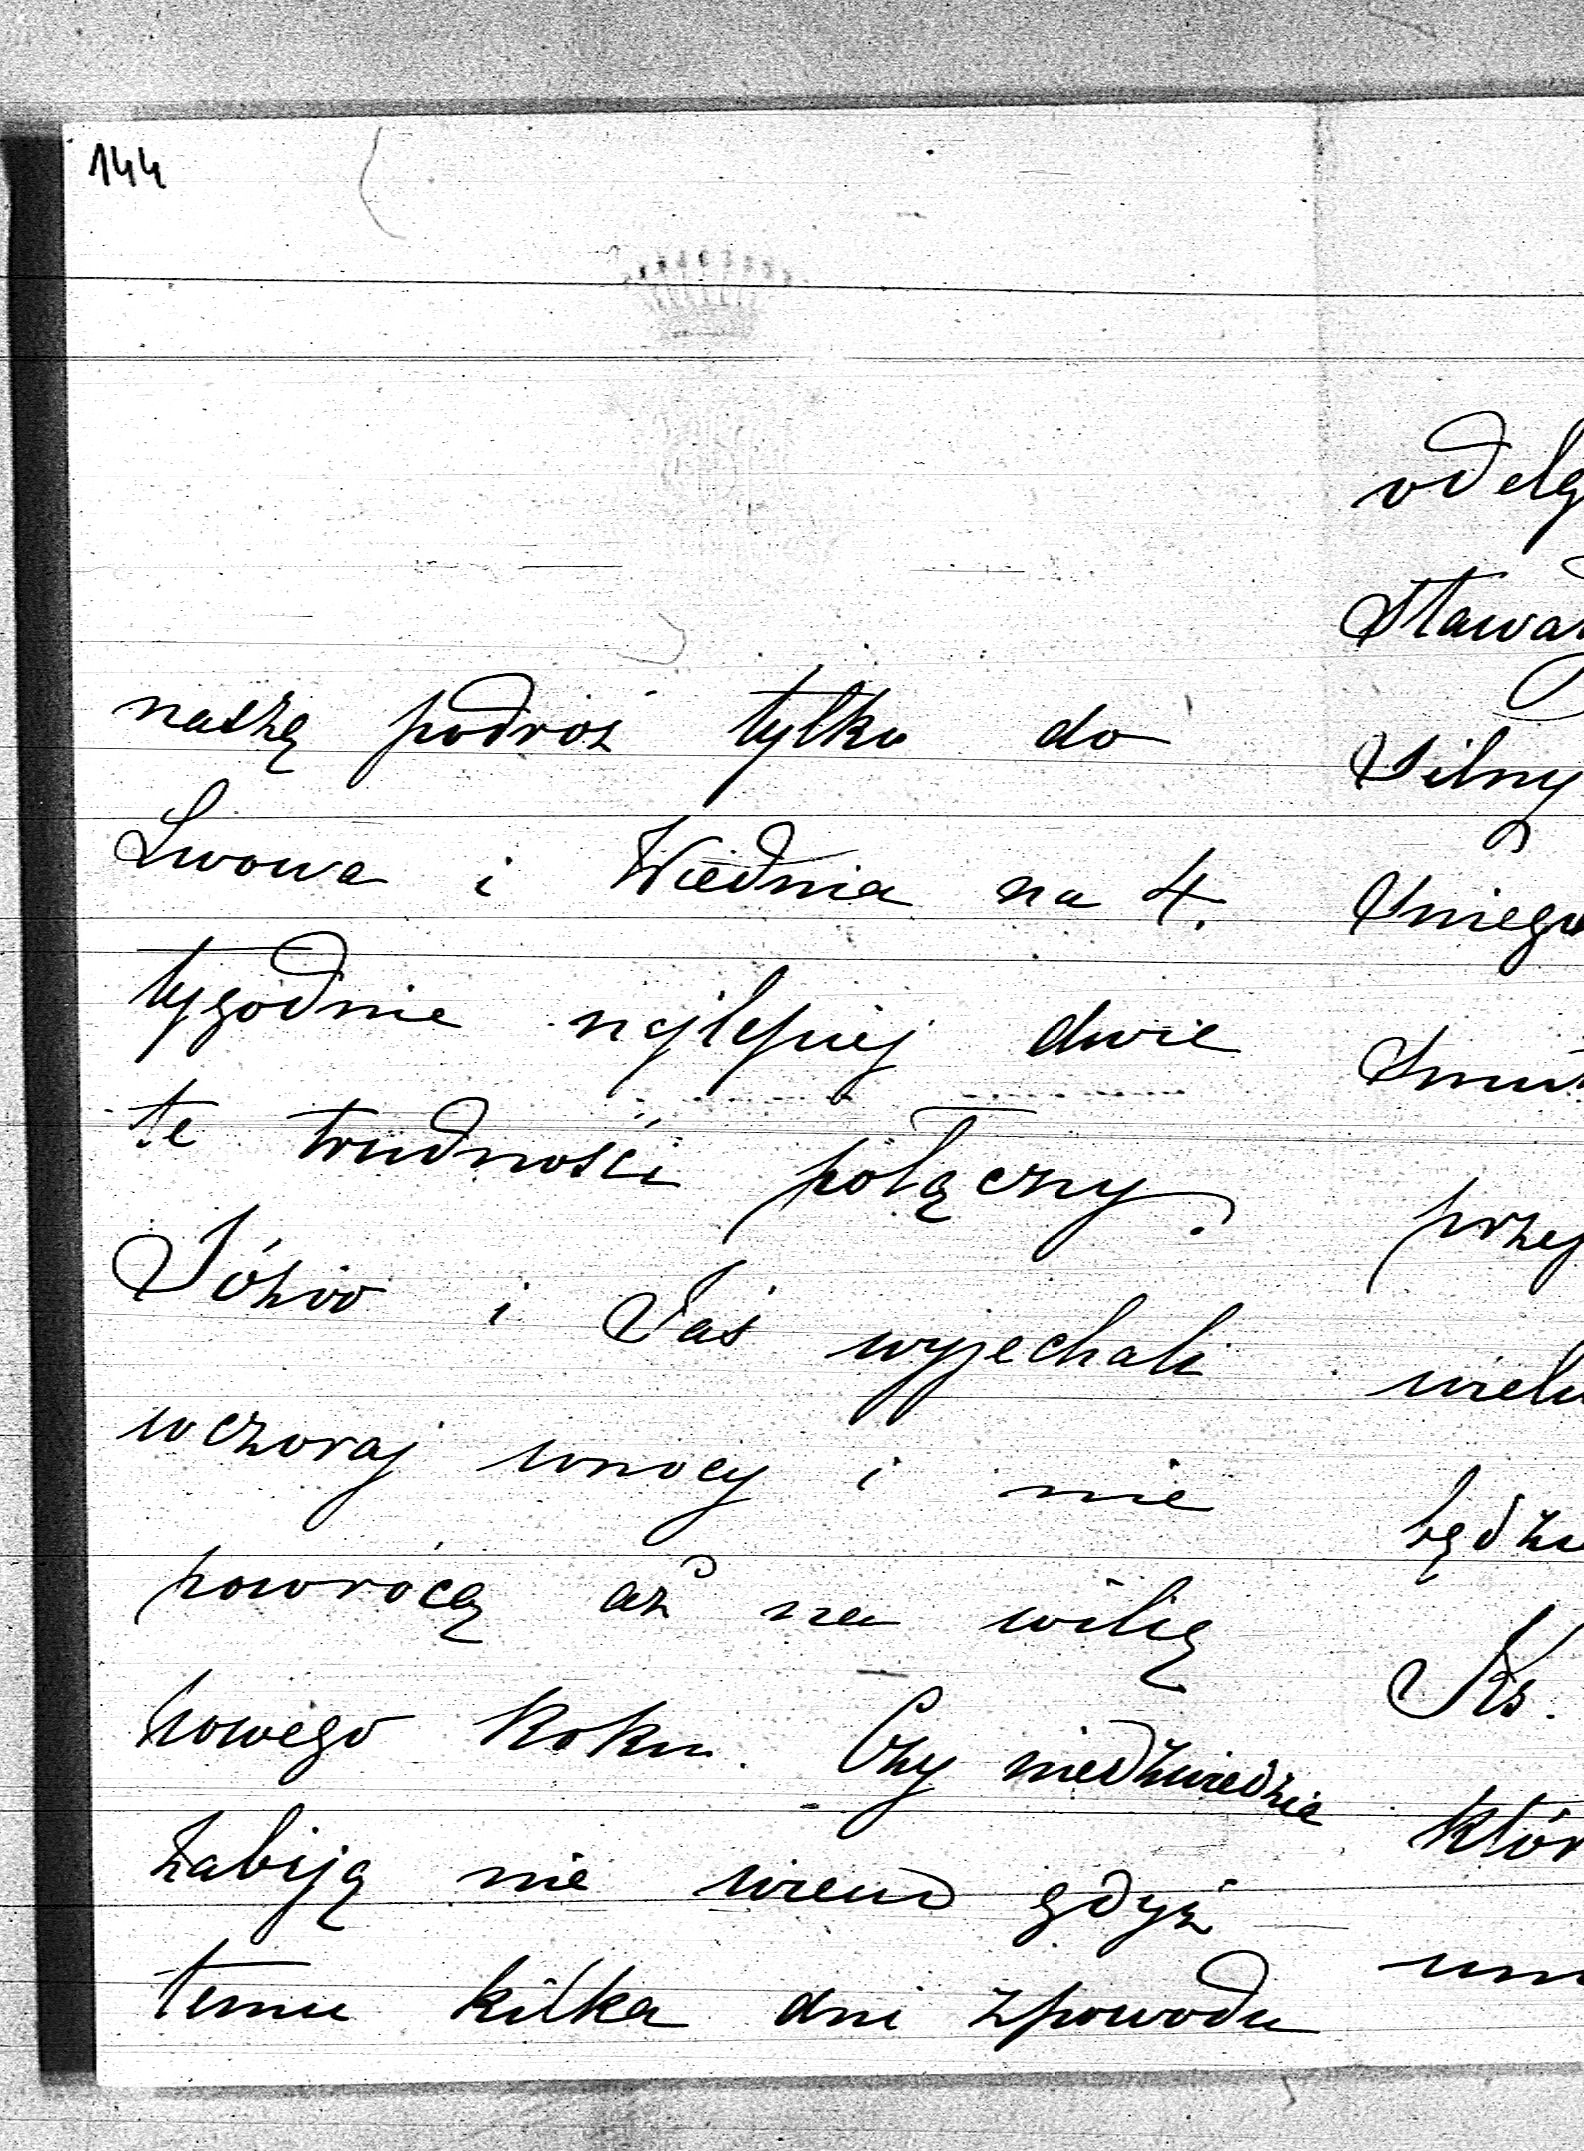 144
naszą podroż tylko do
Lwowa i Wiednia na 4.
tygodnie najlepiej dwie
te trudności połączy.
Józio i Jaś wyjechali
wczoraj wnocy i nie
powrócą aż na wilię
nowego Roku. Czy niedźwiedzia
zabiją nie wiem gdyż
temu kilka dni zpowodu
odelg
Stawa
Silny
Sniegu
przej
wielu
będzie
Ks.
któr